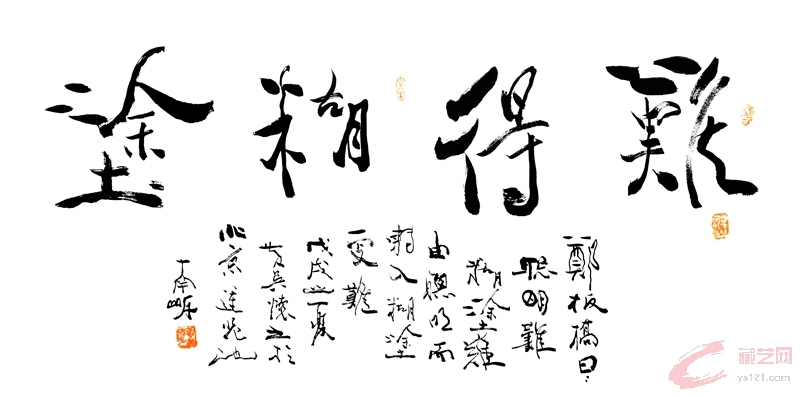 難得糊塗
鄭板橋曰:
聰明難
糊塗難
由聰明而
轉入糊塗
更難
戊戌之夏
吳懷之於
北京蓮花池
南
藏艺网
ys121.com